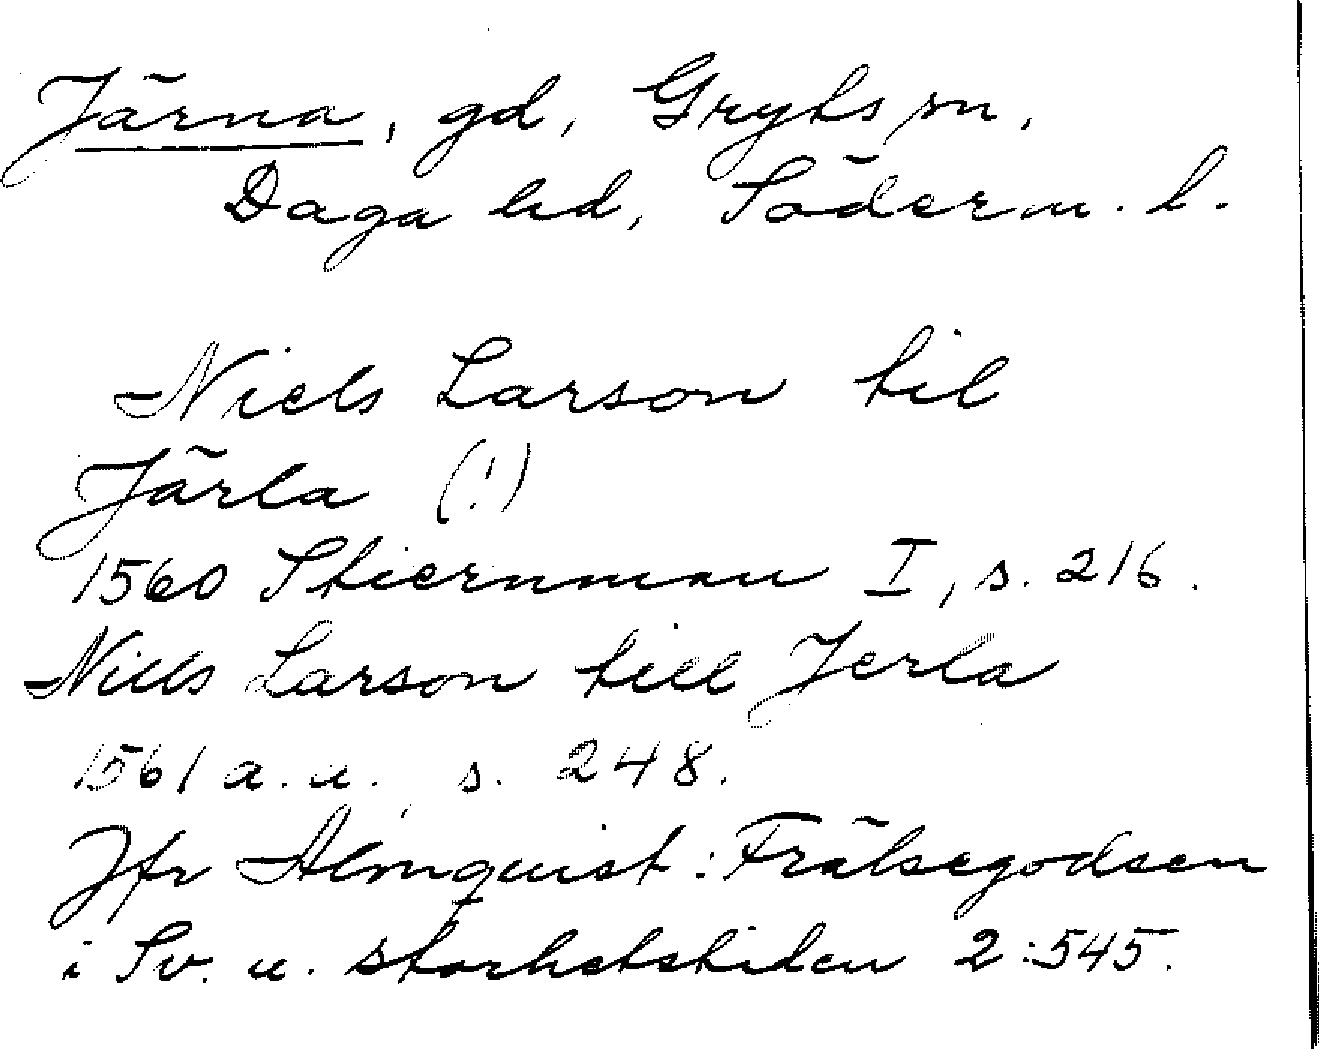 Järna, gd, Gryts sn,
Daga hd, Söderm. l.
Niels Larson til
Järla (!)
1560 Stiernman I, s. 216.
Nills Larson till Jerla
1561 a. u. s. 248.
Jfr Almquist: Frälsegodsen
i Sv. u. storhetstiden 2:545.